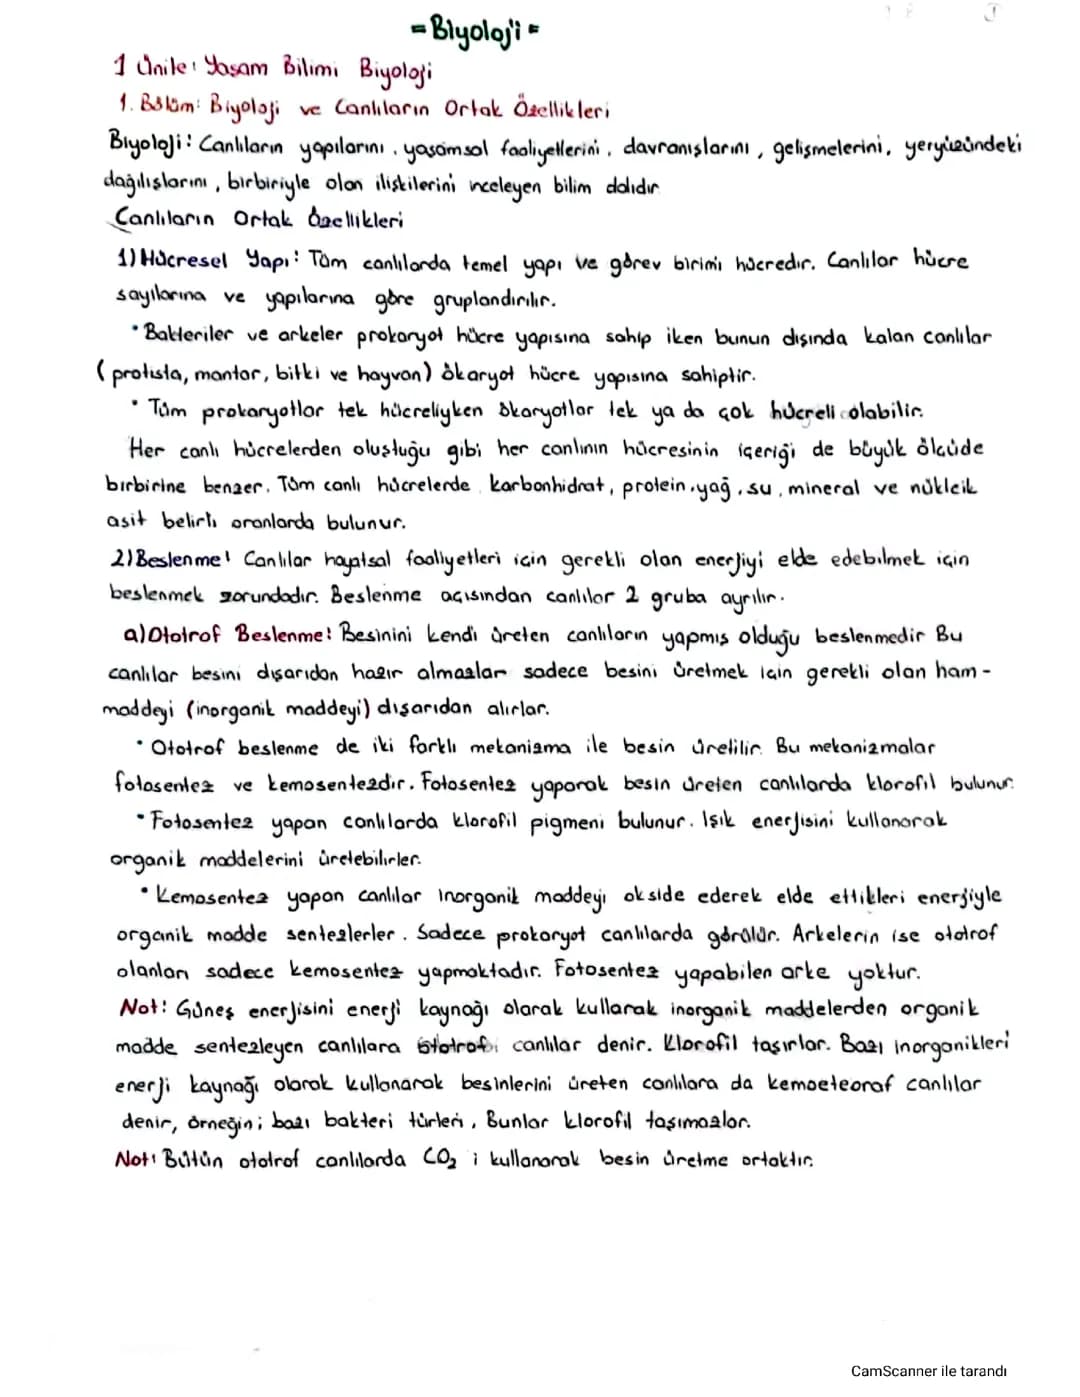 = Biyoloji =
1 Ünite: Yaşam Bilimi Biyoloji
1. Bölüm: Biyoloji ve Canlıların Ortak Özellikleri
Biyoloji: Canlıların yapılarını, yaşamsal faaliyetlerini, davranışlarını, gelişmelerini, yeryüzündeki
dağılışlarını, birbiriyle olan ilişkilerini inceleyen bilim dalıdır
Canlıların Ortak Özellikleri
1) Hücresel Yapı: Tüm canlılarda temel yapı ve görev birimi hücredir. Canlılar hücre
sayılarına ve yapılarına göre gruplandırılır.
• Bakteriler ve arkeler prokaryot hücre yapısına sahip iken bunun dışında kalan canlılar
(protista, mantar, bitki ve hayvan) ökaryot hücre yapısına sahiptir.
• Tüm prokaryotlar tek hücreliyken ökaryotlar tek ya da çok hücreli olabilir.
Her canlı hücrelerden oluştuğu gibi her canlının hücresinin içeriği de büyük ölçüde
birbirine benzer. Tüm canlı hücrelerde karbonhidrat, protein, yağ, su, mineral ve nükleik
asit belirli oranlarda bulunur.
2) Beslenme: Canlılar hayatsal faaliyetleri için gerekli olan enerjiyi elde edebilmek için
beslenmek zorundadır. Beslenme açısından canlılar 2 gruba ayrılır.
a) Ototrof Beslenme: Besinini kendi üreten canlıların yapmış olduğu beslenmedir Bu
canlılar besini dışarıdan hazır almazlar sadece besini üretmek için gerekli olan ham-
maddeyi (inorganik maddeyi) dışarıdan alırlar.
• Ototrof beslenme de iki farklı mekanizma ile besin üretilir. Bu mekanizmalar
fotosentez ve kemosentezdir. Fotosentez yaparak besin üreten canlılarda klorofil bulunur.
• Fotosentez yapan canlılarda klorofil pigmeni bulunur. Işık enerjisini kullanarak
organik maddelerini üretebilirler.
• Kemosentez yapan canlılar inorganik maddeyi okside ederek elde ettikleri enerjiyle
organik madde sentezlerler. Sadece prokaryot canlılarda görülür. Arkelerin ise ototrof
olanları sadece kemosentez yapmaktadır. Fotosentez yapabilen arke yoktur.
Not: Güneş enerjisini enerji kaynağı olarak kullarak inorganik maddelerden organik
madde sentezleyen canlılara canlılar denir. Klorofil taşırlar. Bazı inorganikleri
enerji kaynağı olarak kullanarak besinlerini üreten canlılara da kemoeteoraf canlılar
denir, örneğin; bazı bakteri türleri, Bunlar klorofil taşımazlar.
Not: Bütün ototrof canlılarda CO₂ i kullanarak besin üretme ortaktır.
CamScanner ile tarandı